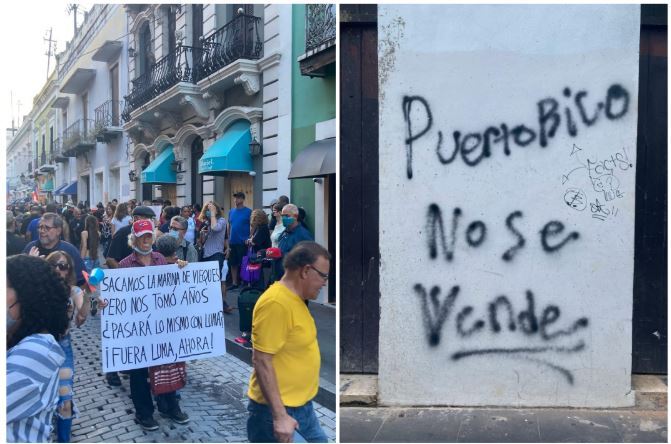 SACAMOS LA MARINA DE VIEQUES
PERO NOS TOMÓ AÑOS
¿PASARÁ LO MISMO CON LUMA?
¡FUERA LUMA, AHORA!
PUERTO RICO
No se
Vende
FACTS!